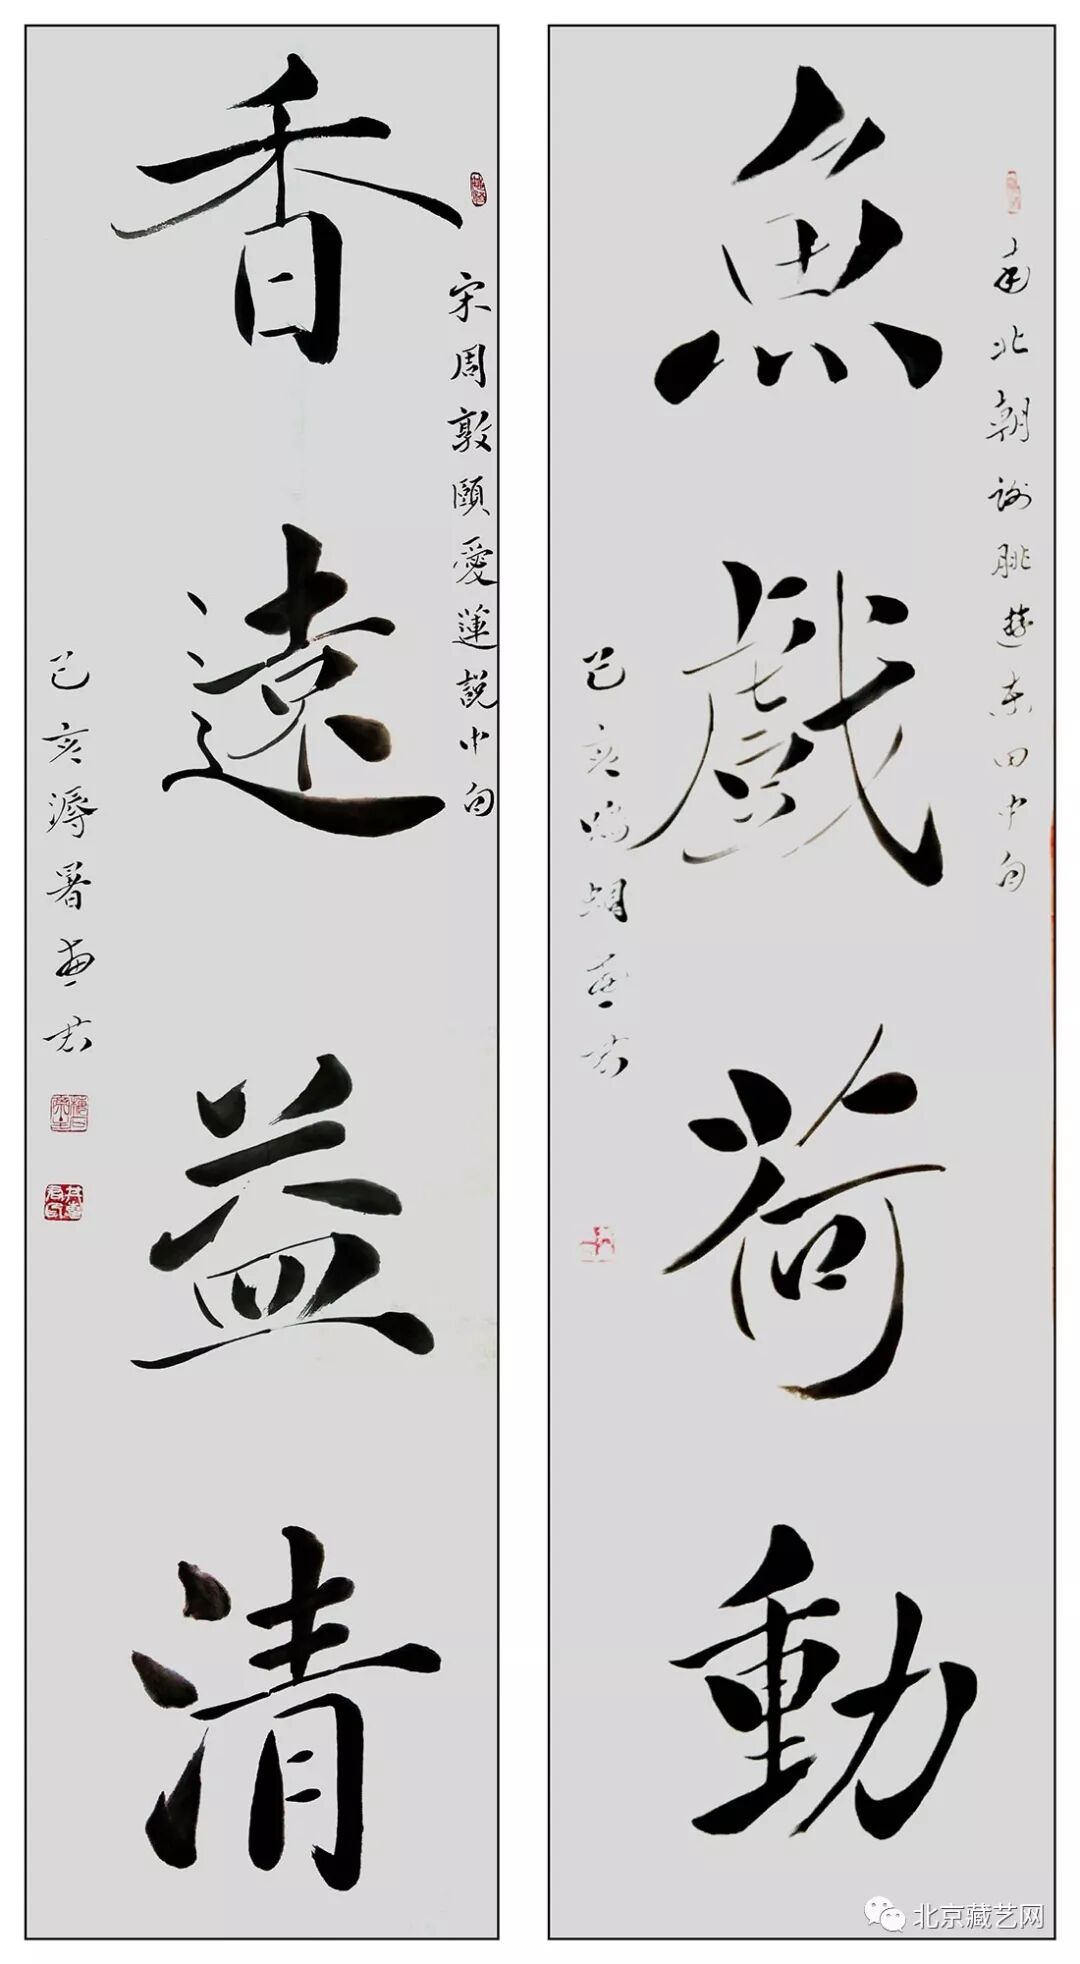 魚戲荷動
南北朝謝朓遊東田中句
己亥鳴蜩惠君
香遠益清
宋周敦頤愛蓮說中句
己亥溽暑惠君
北京藏艺网